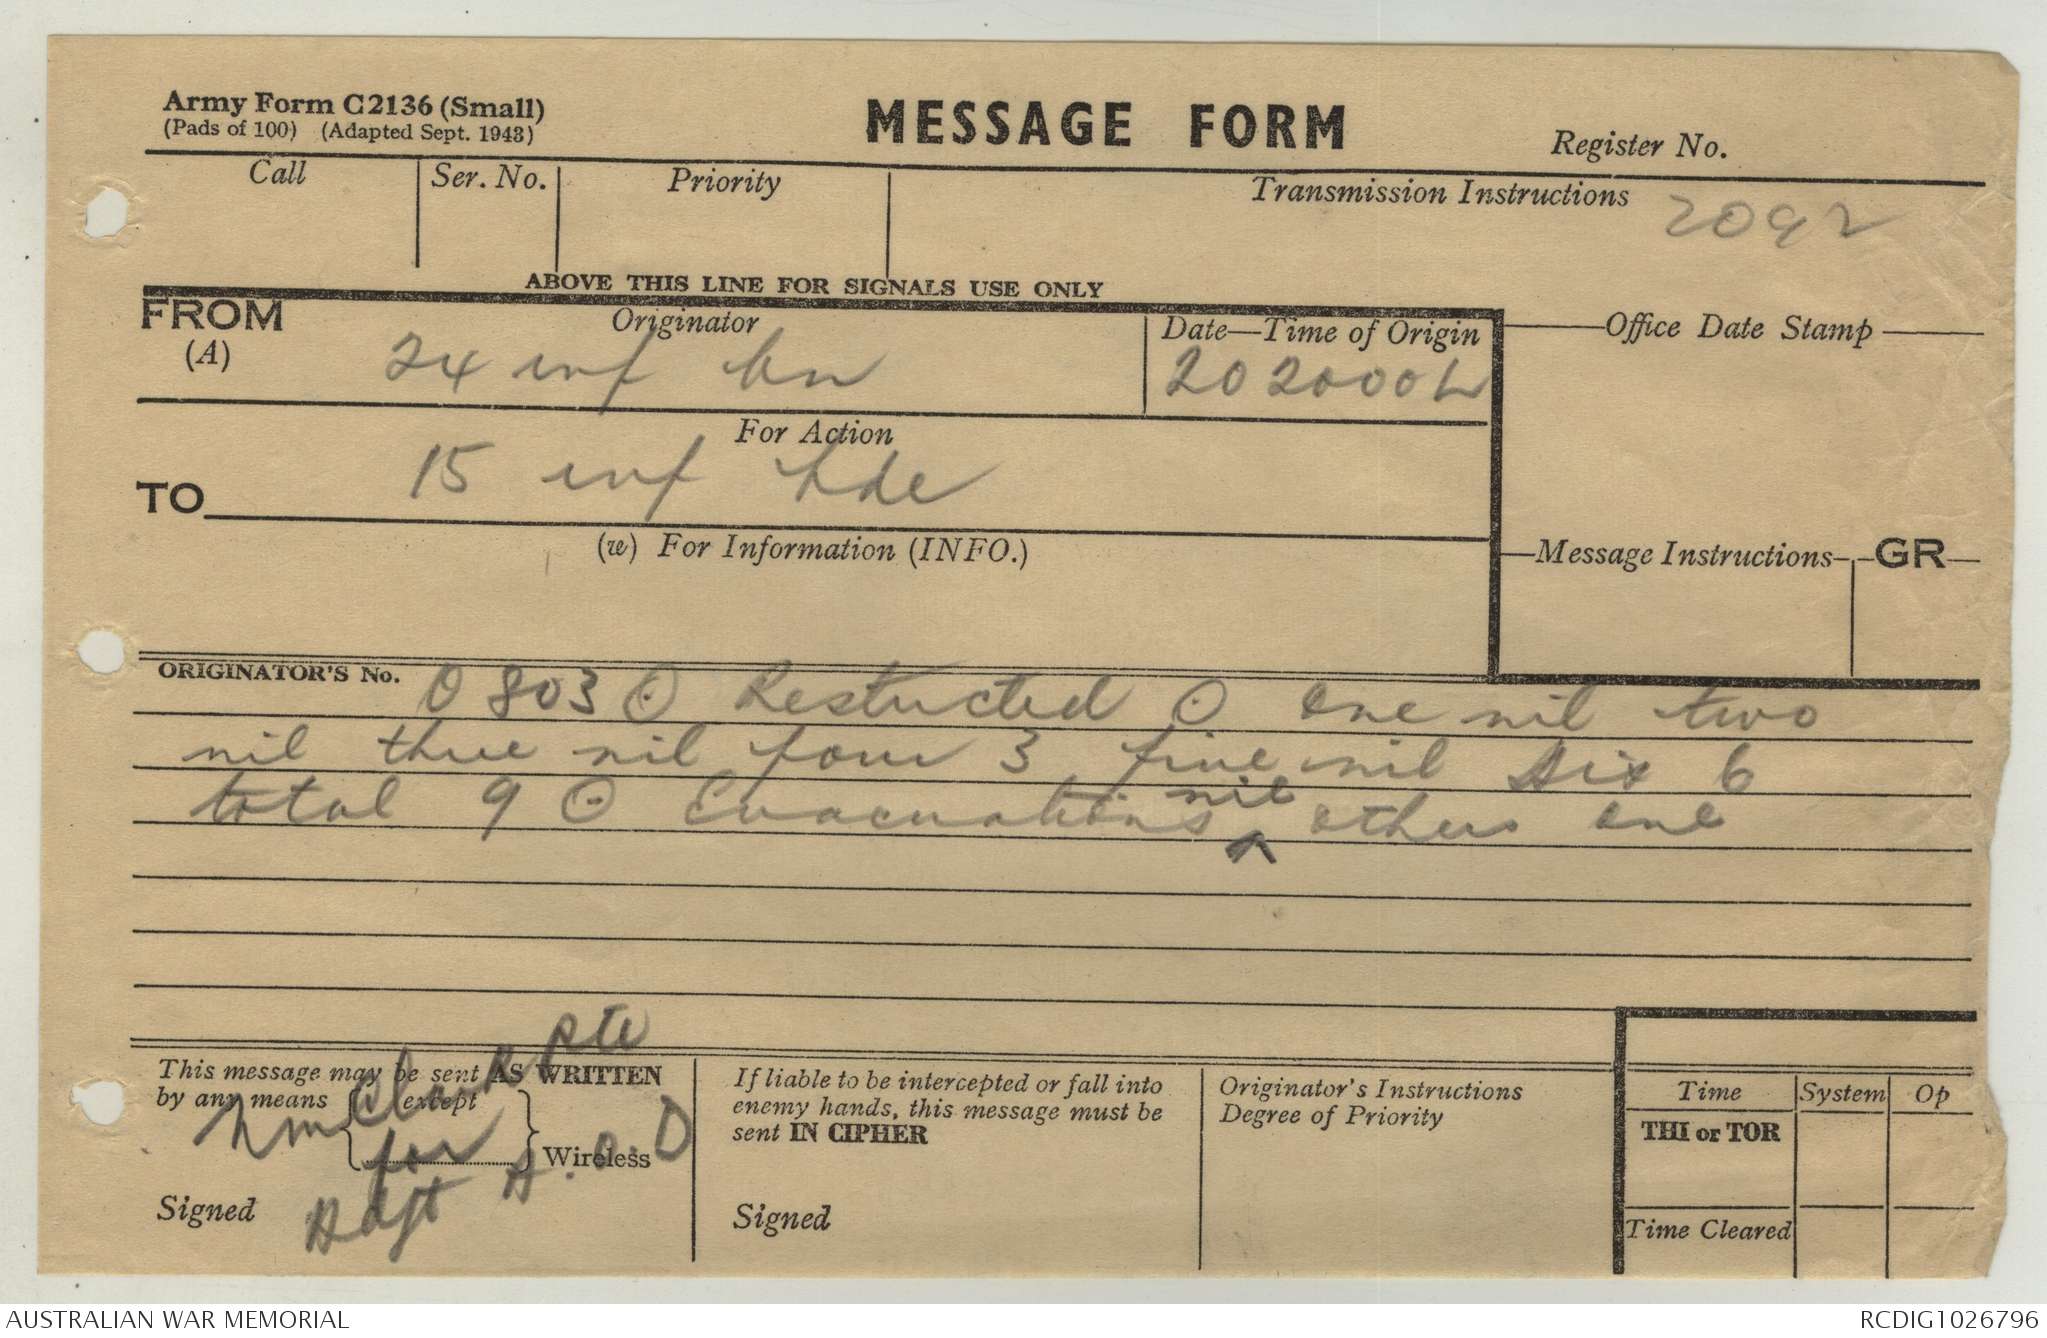 Army Form C2136 (Small)
(Pads of 100) (Adapted Sept. 1943)
MESSAGE FORM
Register No.
Call
Ser. No.
Priority
Transmission Instructions
2092
ABOVE THIS LINE FOR SIGNALS USE ONLY
FROM
(A)
Originator
24 inf bn
Date—Time of Origin
202000L
Office Date Stamp
For Action
TO
15 inf bde
(w) For Information (INFO.)
Message Instructions
GR
ORIGINATOR'S No.
O 803 ⊙ Restricted ⊙ one nil two
nil three nil four 3 five nil six 6
total 9 ⊙ Evacuations nil ^ others one
This message may be sent AS WRITTEN
by any means except
Wireless
Clark Pte
for
A.O.D
Adjt
Signed
If liable to be intercepted or fall into
enemy hands, this message must be
sent IN CIPHER
Signed
Originator's Instructions
Degree of Priority
Time
System
Op
THI or TOR
Time Cleared
AUSTRALIAN WAR MEMORIAL
RCDIG1026796